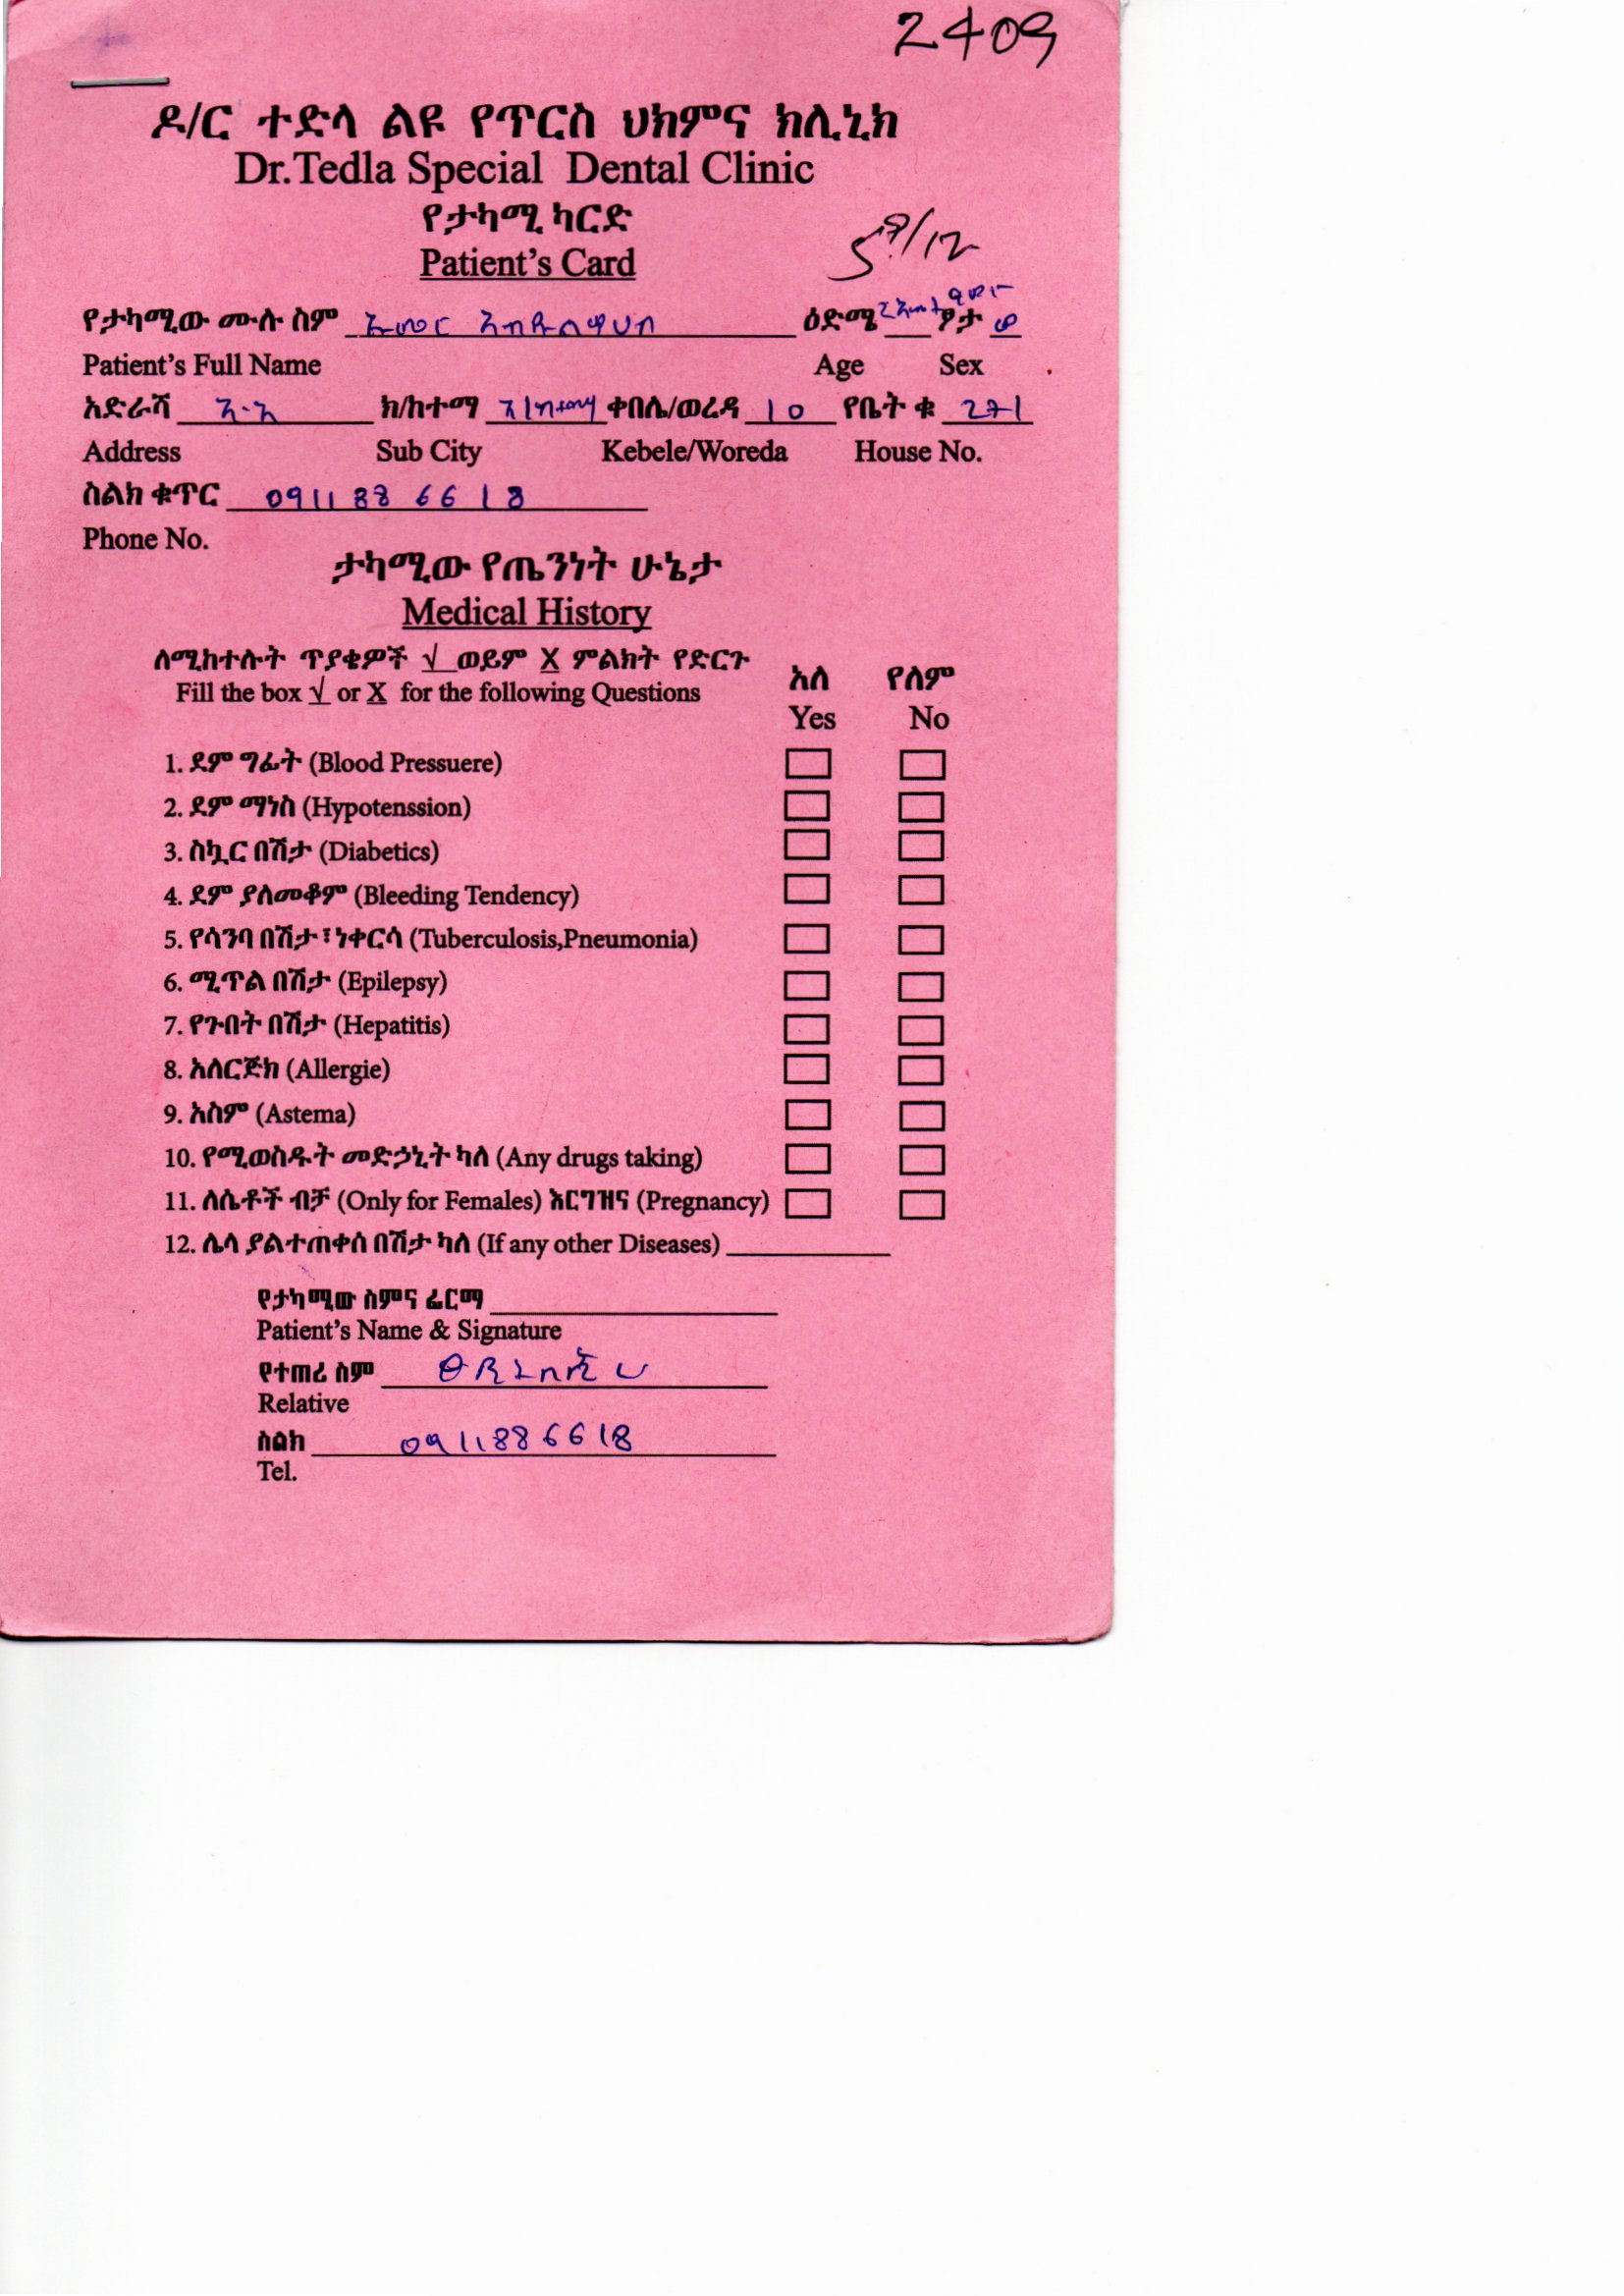 2409
ዶ/ር ተድላ ልዩ የጥርስ ህክምና ክሊኒክ
Dr.Tedla Special Dental Clinic
የታካሚ ካርድ
Patient's Card
የታካሚው ሙሉ ስም ኡመር አብዱልዋሀብ ዕድሜ ፆታ ወ
Patient's Full Name Age Sex
አድራሻ አ.አ ክ/ከተማ አ/ከተማ ቀበሌ/ወረዳ 10 የቤት ቁ 271
Address Sub City Kebele/Woreda House No.
ስልክ ቁጥር 0911 88 66 18
Phone No.
ታካሚው የጤንነት ሁኔታ
Medical History
ለሚከተሉት ጥያቄዎች √ ወይም X ምልክት የድርጉ
Fill the box √ or X for the following Questions
አለ የለም
Yes No
1. ደም ግፊት (Blood Pressuere)
2. ደም ማነስ (Hypotenssion)
3. ስኳር በሽታ (Diabetics)
4. ደም ያለመቆም (Bleeding Tendency)
5. የሳንባ በሽታ፣ነቀርሳ (Tuberculosis,Pneumonia)
6. ሚጥል በሽታ (Epilepsy)
7. የጉበት በሽታ (Hepatitis)
8. አለርጅክ (Allergie)
9. አስም (Astema)
10. የሚወስዱት መድኃኒት ካለ (Any drugs taking)
11. ለሴቶች ብቻ (Only for Females) እርግዝና (Pregnancy)
12. ሌላ ያልተጠቀሰ በሽታ ካለ (If any other Diseases)
የታካሚው ስምና ፊርማ
Patient's Name & Signature
የተጠሪ ስም
Relative
ስልክ 0911886618
Tel.